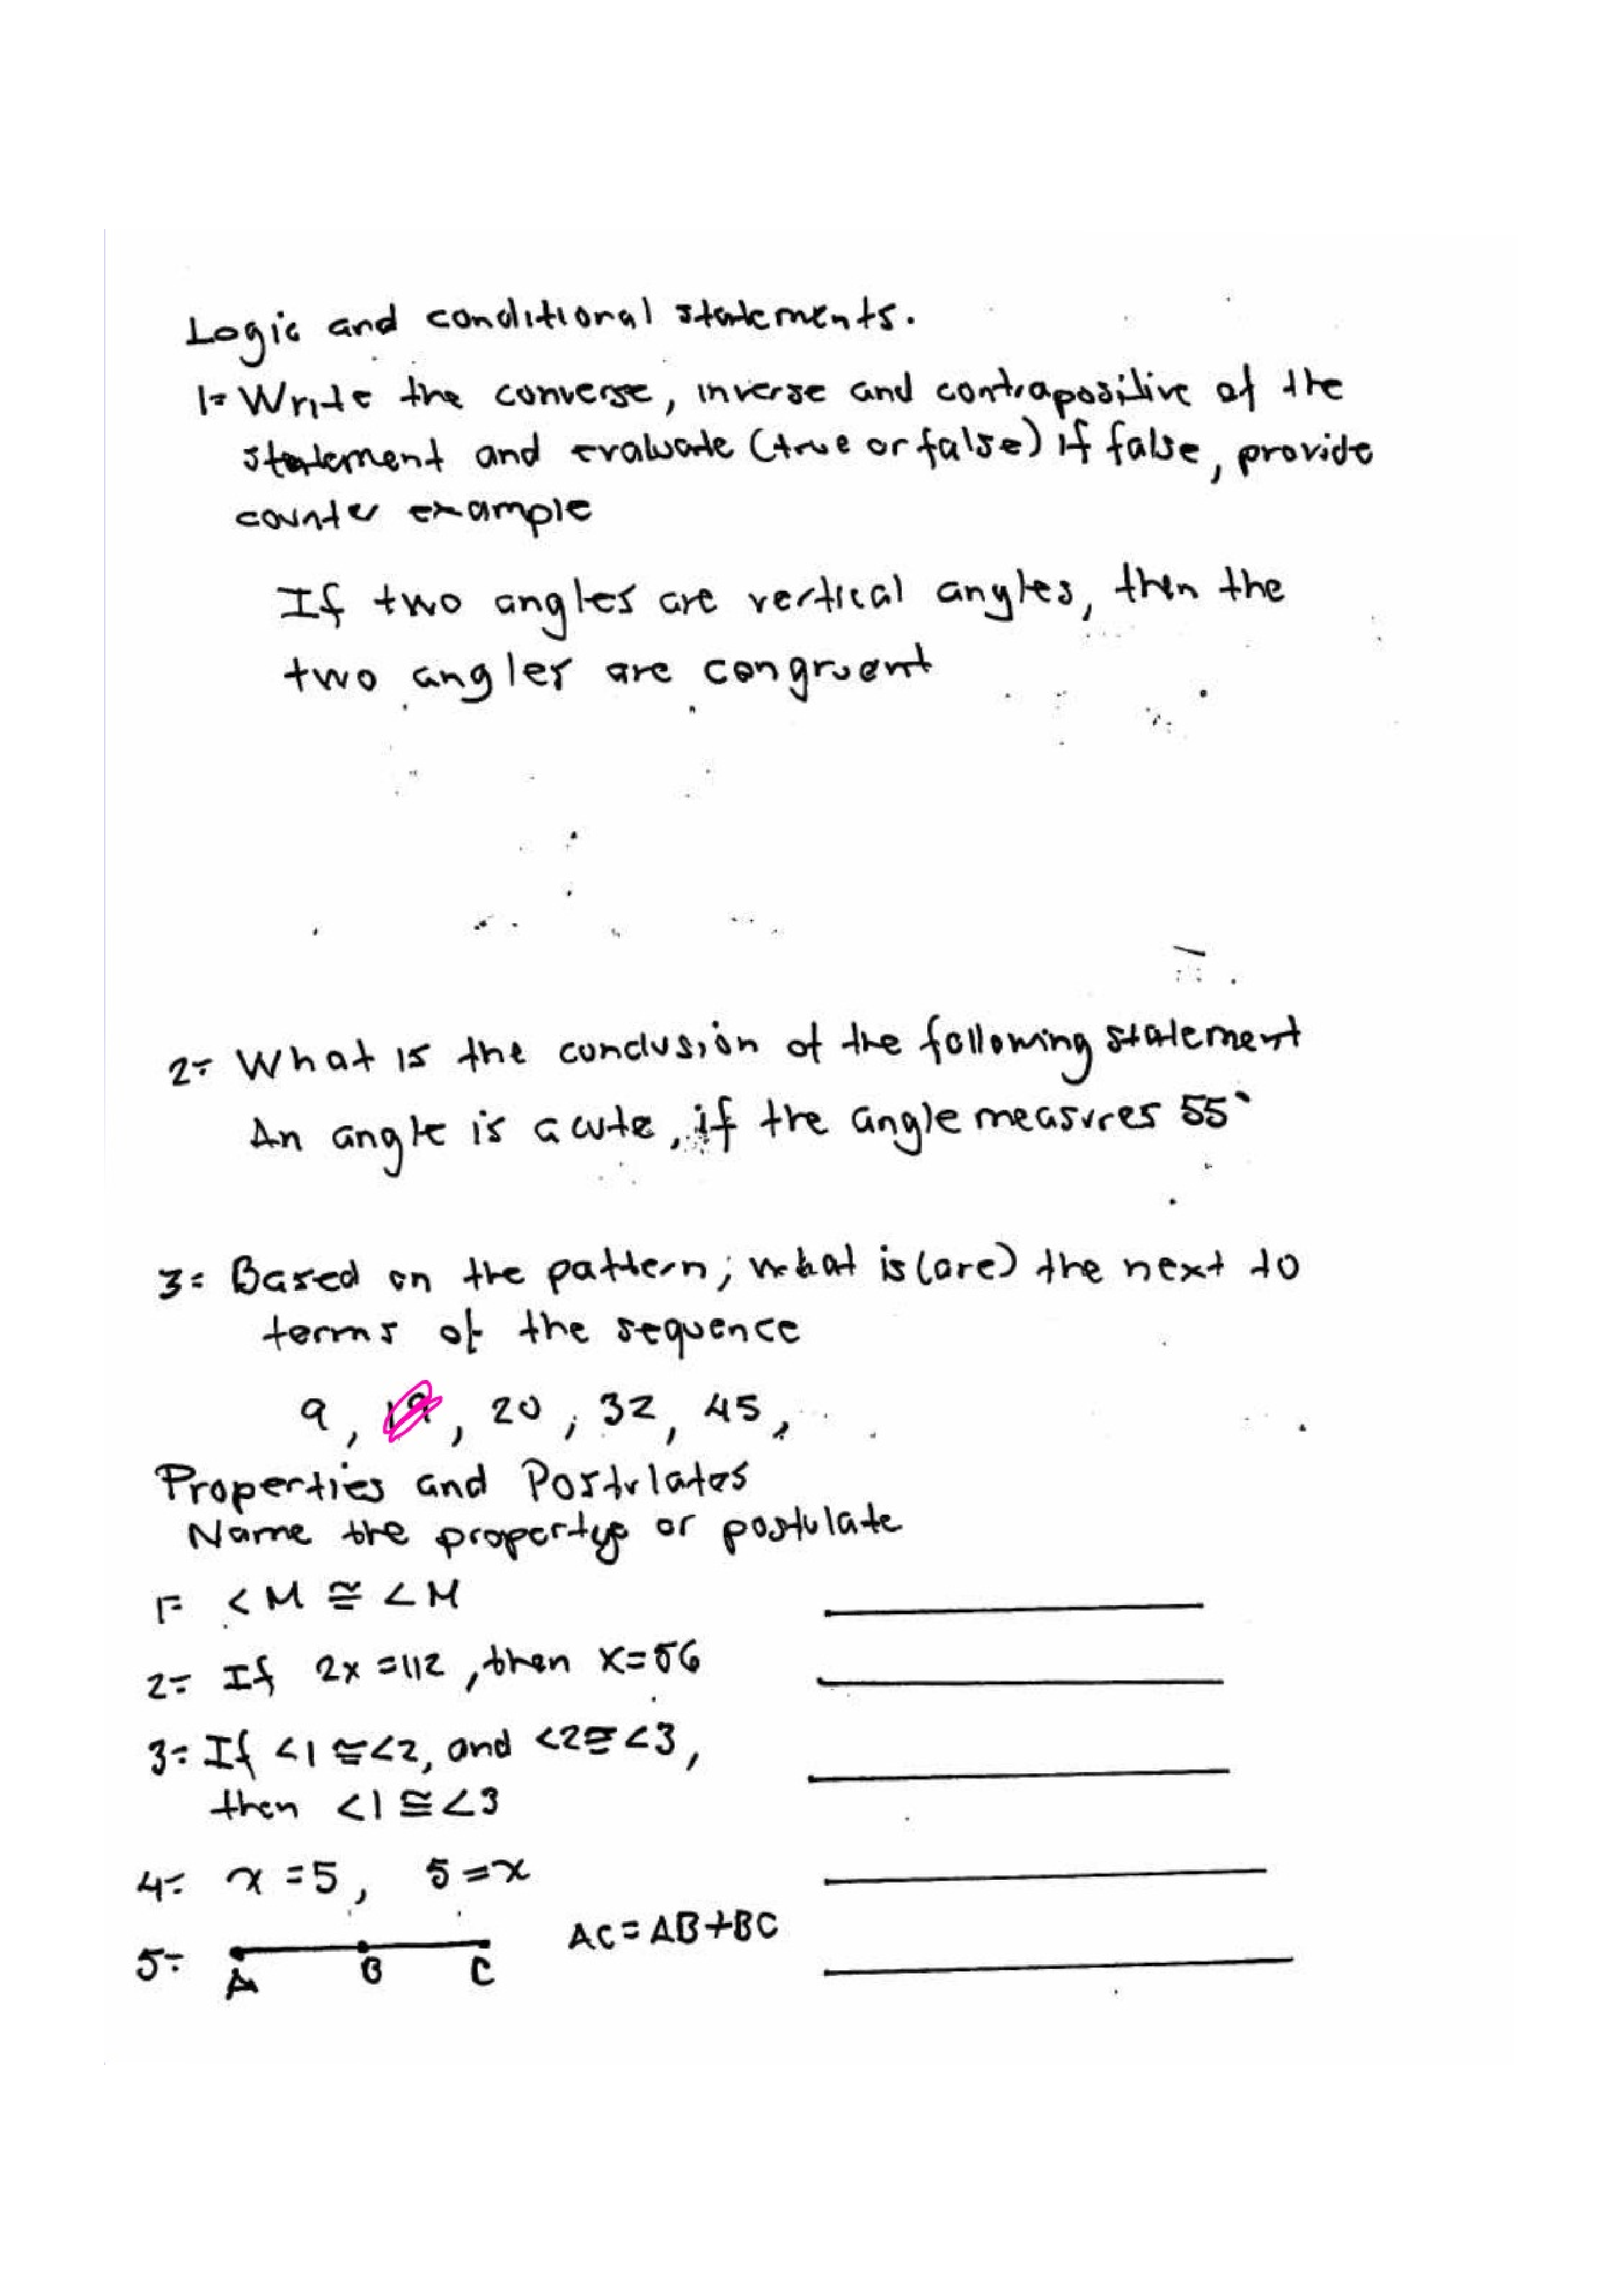 Logic and conditional statements.
1- Write the converse, inverse and contrapositive of the
statement and evaluate (true or false) if false, provide
counter example
If two angles are vertical angles, then the
two angles are congruent
2- What is the conclusion of the following statement
An angle is acute, if the angle measures 55°
3- Based on the pattern; what is (are) the next to
terms of the sequence
9, , 20, 32, 45,
Properties and Postulates
Name the property or postulate
1- <M ≅ <M
2- If 2x = 112, then x = 56
3- If <1 ≅ <2, and <2 ≅ <3,
then <1 ≅ <3
4- x = 5, 5 = x
5- A B C AC = AB + BC